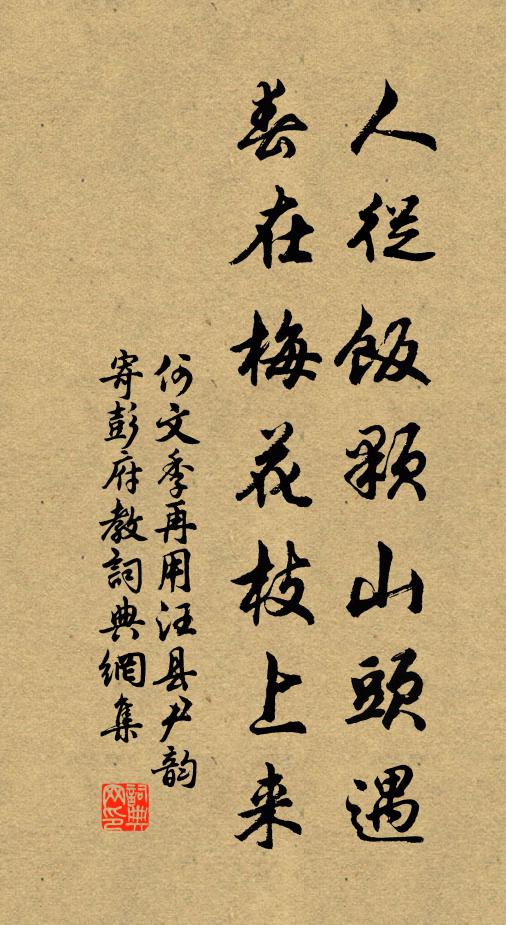 人從飯顆山頭遇
春在梅花枝上来
何文季再用汪县尹韵
寄彭府教詞典網集
詞典網印